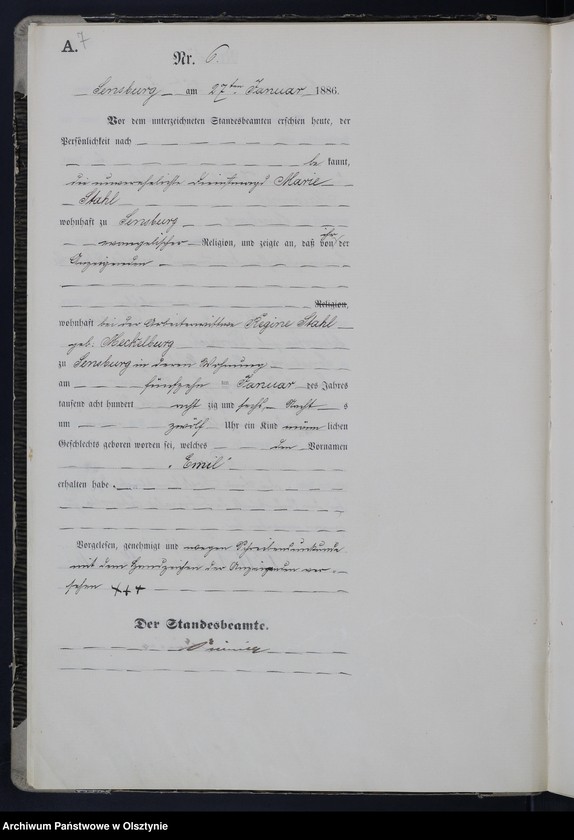 A. 7
Nr. 6
Sensburg am 27ten Januar 1886.
Vor dem unterzeichneten Standesbeamten erschien heute, der
Persönlichkeit nach
be kannt,
die unverehelichte Dienstmagd Marie
Stahl
wohnhaft zu Sensburg
evangelischer Religion, und zeigte an, daß von ihr der
Anzeigenden
Religion,
wohnhaft bei der Arbeiterwittwe Regine Stahl
geb: Meckelburg
zu Sensburg in deren Wohnung
am fünfzehn ten Januar des Jahres
tausend acht hundert acht zig und sechs Nacht s
um zwölf Uhr ein Kind männ lichen
Geschlechts geboren worden sei, welches den Vornamen
„Emil“
erhalten habe.
Vorgelesen, genehmigt und wegen Schreibensunkunde
mit dem Handzeichen der Anzeigenden ver-
sehen +++
Der Standesbeamte.
Archiwum Państwowe w Olsztynie